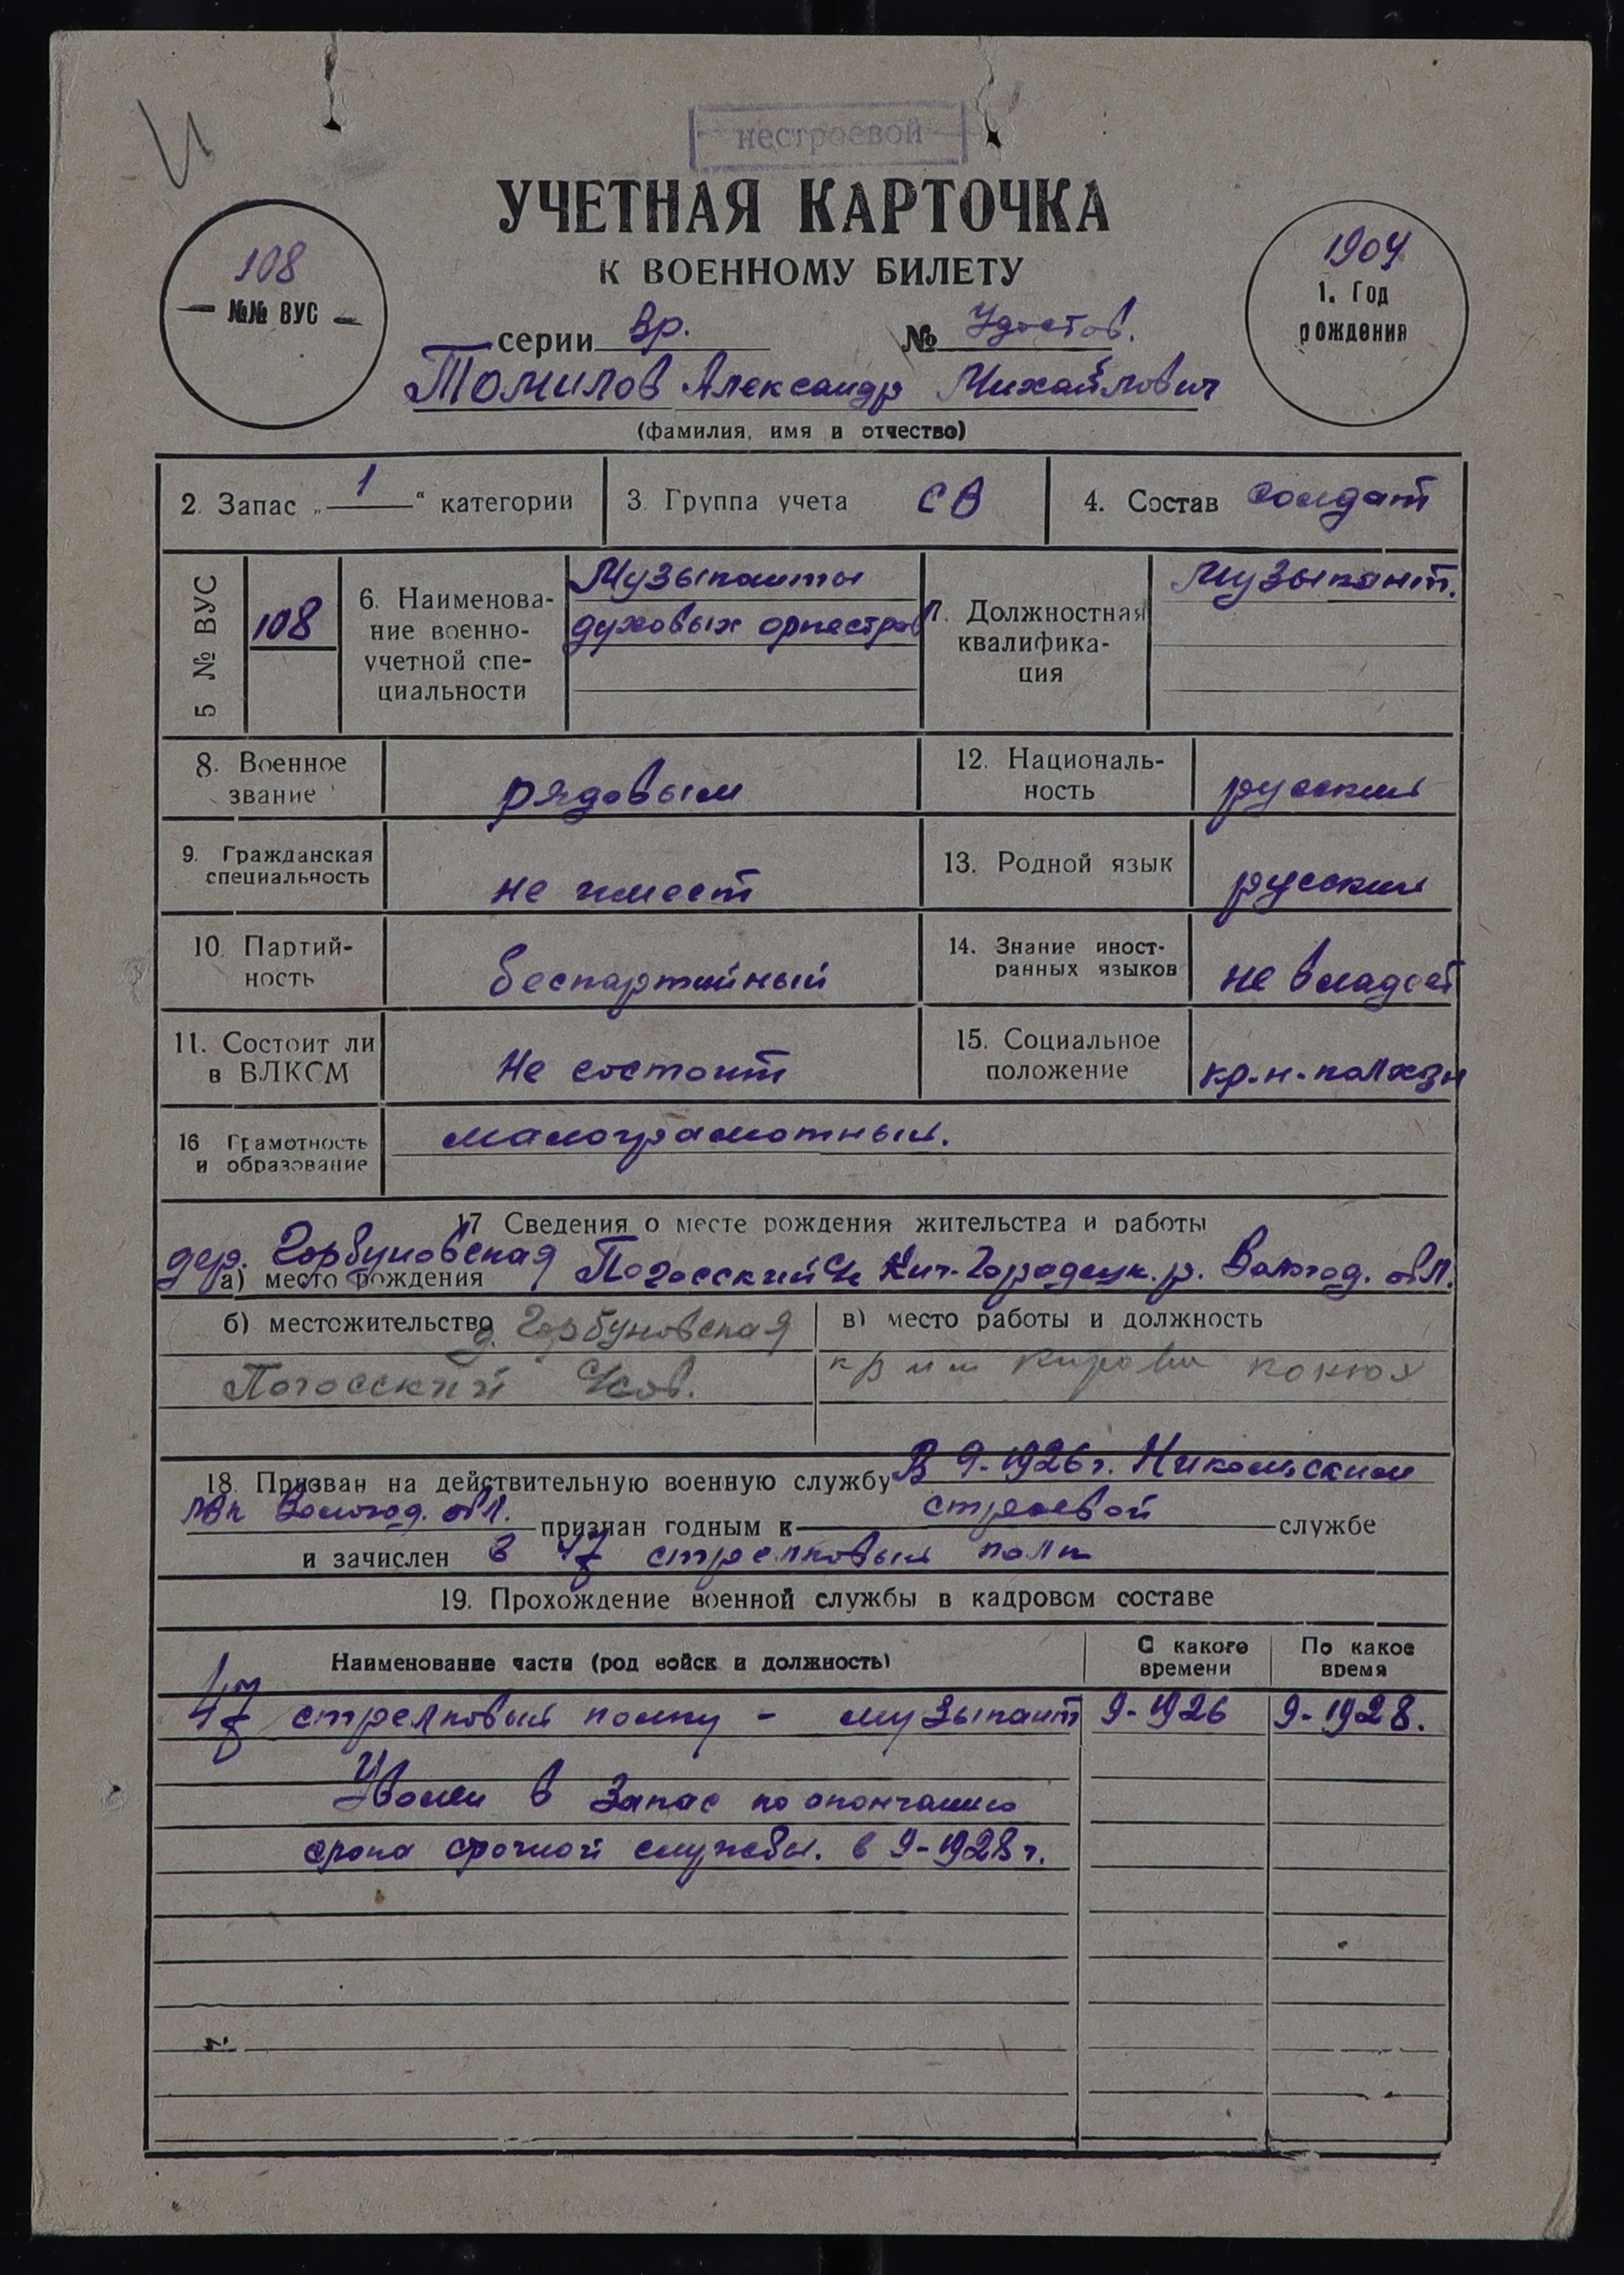 И
нестроевой
УЧЕТНАЯ КАРТОЧКА
К ВОЕННОМУ БИЛЕТУ
108
№№ ВУС
1904
1. Год
рождения
серии Вр. № Удостов.
Томилов Александр Михайлович
(фамилия, имя и отчество)
2. Запас „ 1 “ категории
3. Группа учета СВ
4. Состав солдат
5 № ВУС
108
6. Наименова-
ние военно-
учетной спе-
циальности
Музыканты
духовых оркестров
7. Должностная
квалифика-
ция
Музыкант.
8. Военное
звание
рядовым
12. Националь-
ность
русский
9. Гражданская
специальность
не имеет
13. Родной язык
русский
10. Партий-
ность
беспартийный
14. Знание иност-
ранных языков
не владеет
11. Состоит ли
в ВЛКСМ
Не состоит
15. Социальное
положение
кр.-н.-колхзн
16 Грамотность
и образование
малограмотный.
17 Сведения о месте рождения жительства и работы
дер. Горбуновская Погосский Кич.-Городецк. р. Вологод. обл.
а) место рождения
б) местожительство д. Горбуновская
Погосский с/сов.
в) место работы и должность
Кирова конюх
18. Призван на действительную военную службу В 9-1926 г. Никольским
Вологод. обл. признан годным к строевой службе
и зачислен в стрелковый полк
19. Прохождение военной службы в кадровом составе
Наименование части (род войск и должность)
С какого
времени
По какое
время
стрелковый полку - музыкант 9-1926 9-1928.
Уволен в запас по окончанию
срока срочной службы. в 9-1928 г.